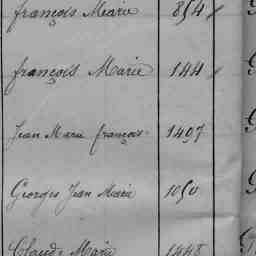 françois Marie 854
françois Marie 144
Jean Marie françois 1497
Georges Jean Marie 1050
Claude Marie 1448